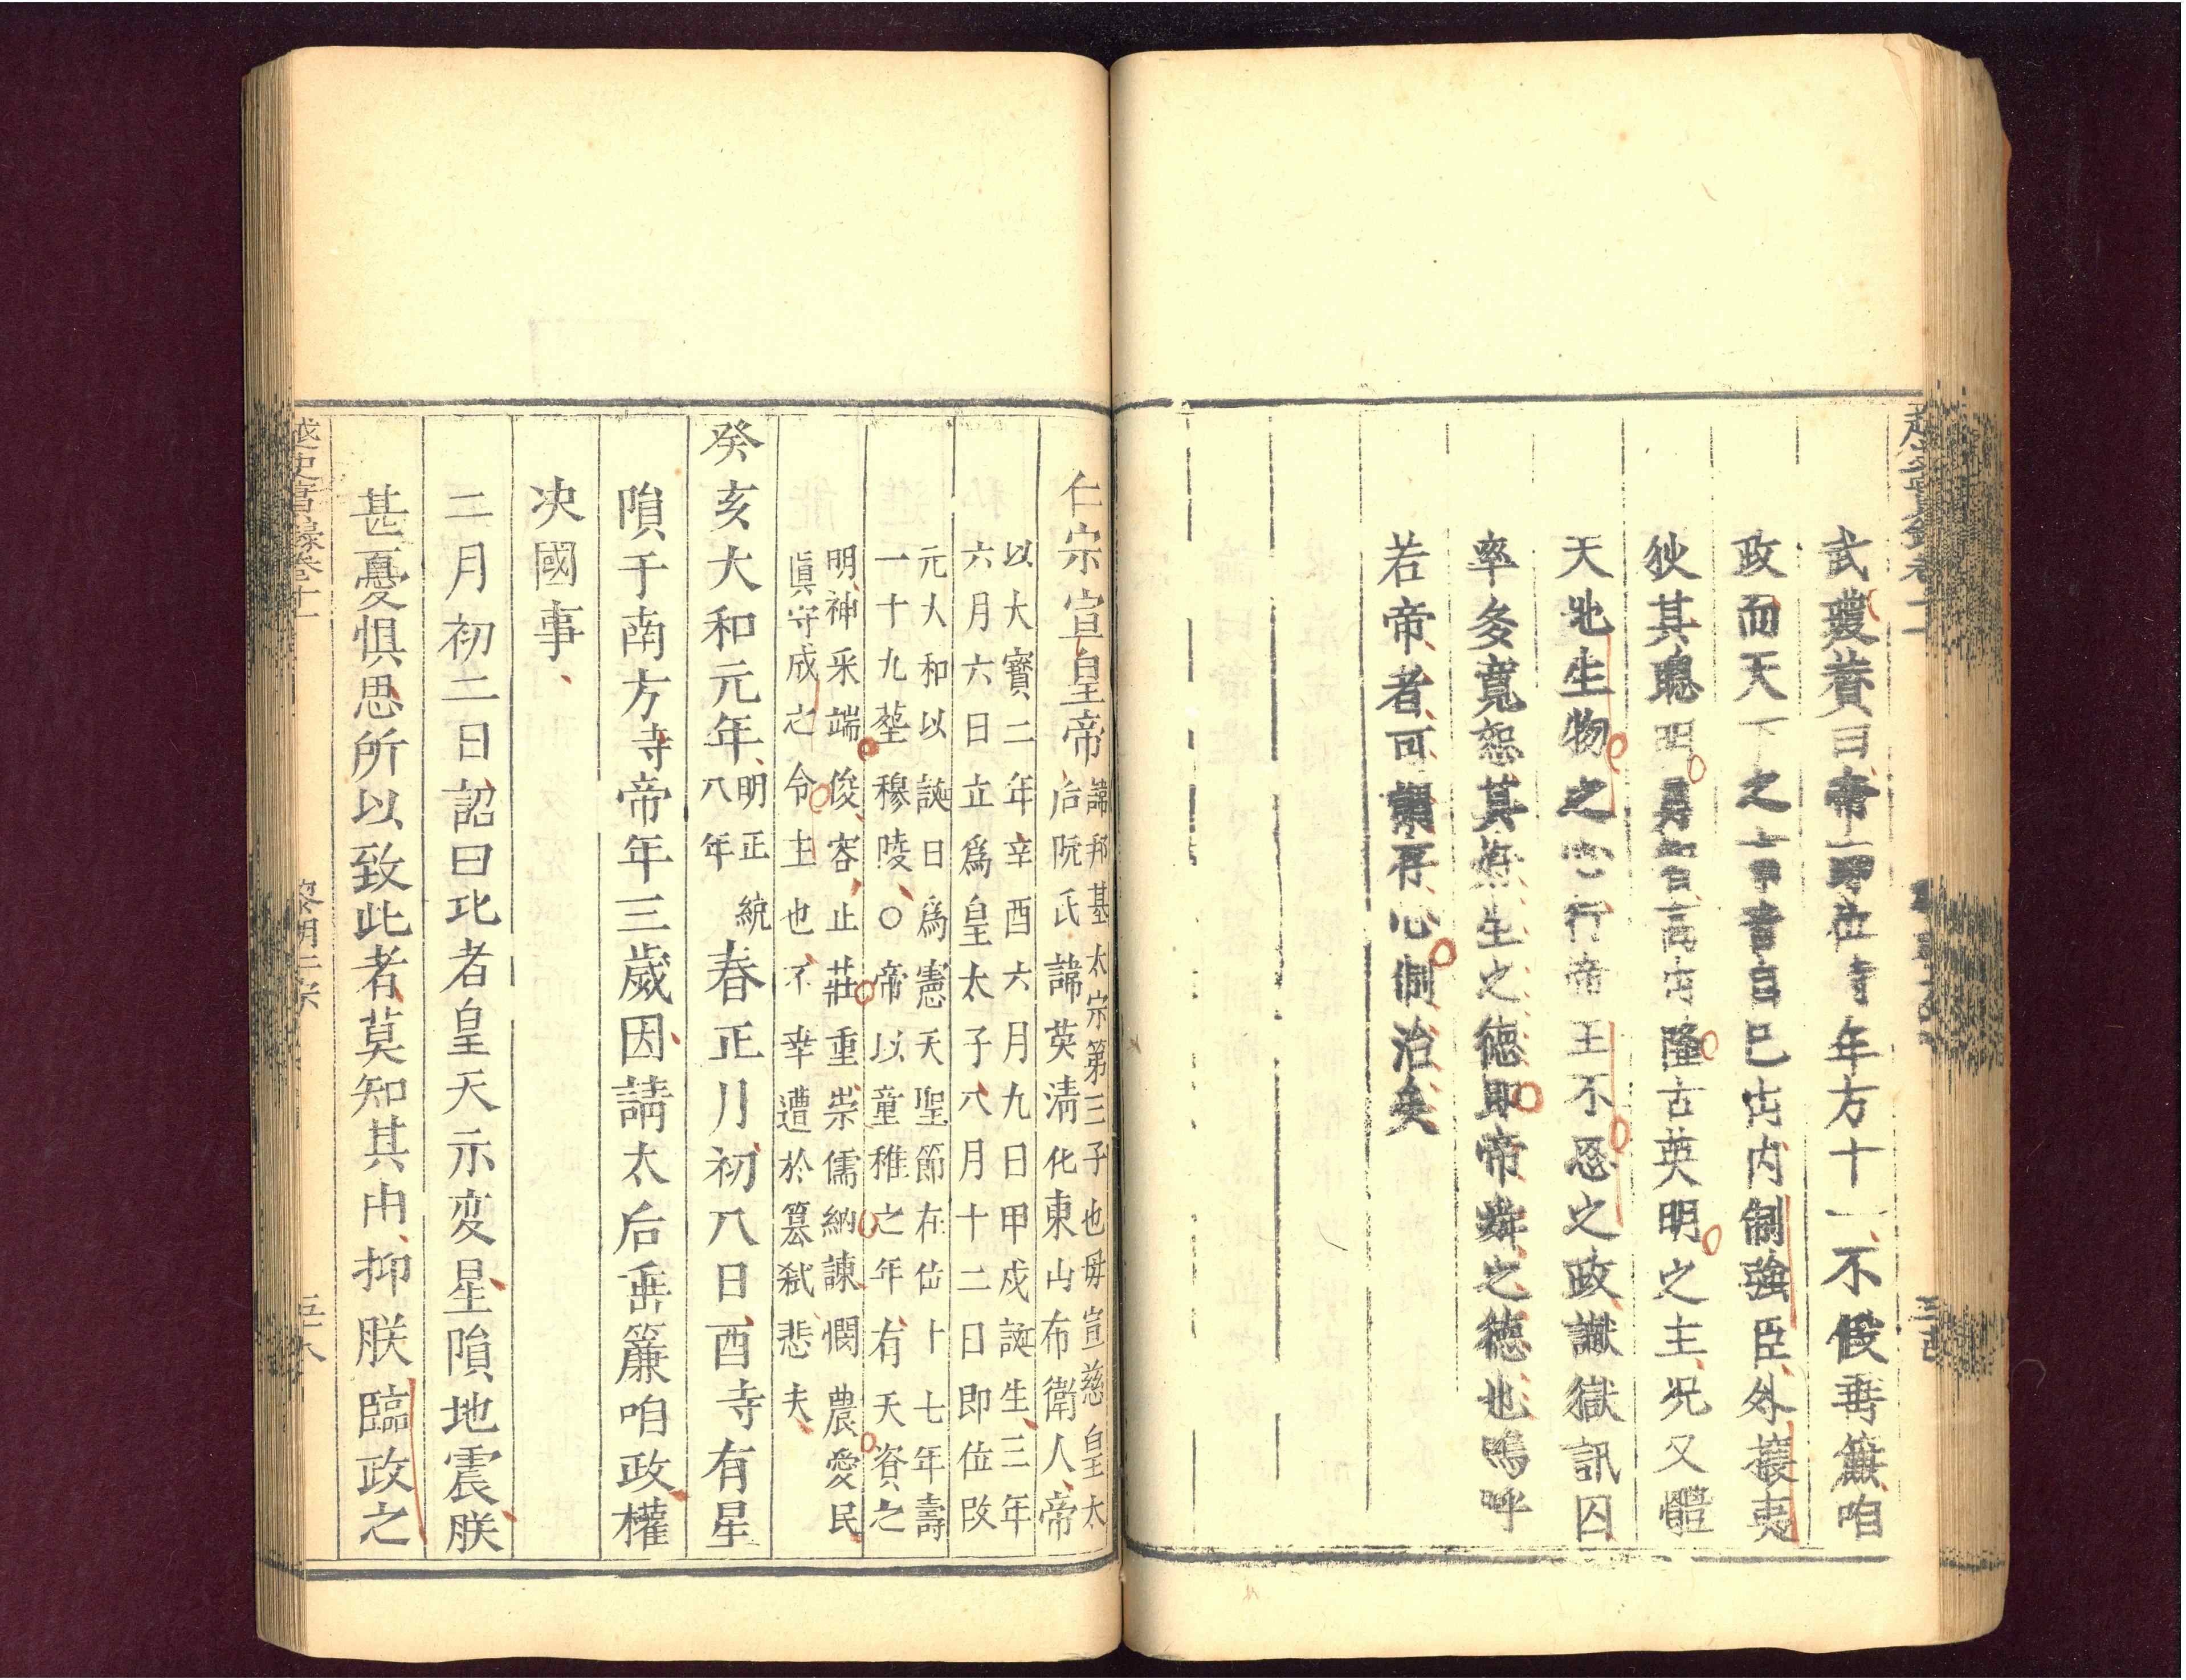 武瓊賛曰帝即位時年方十一不假垂簾咱
政而天下之事皆自己出内制強臣外攘夷
狄其聰明勇智高出隆古英明之主况又體
天地生物之心行帝王不忍之政讞獄訊囚
率多寬恕其好生之德即帝舜之德也嗚呼
若帝者可謂存心制治矣
仁宗宣皇帝
諱邦基太宗第三子也毋宣慈皇太
后阮氏諱英清化東山布衛人帝
以大寶二年辛酉六月九日甲戍誕生三年
六月六日立爲皇太子八月十二日即位改
元大和以誕日爲憲天聖節在位十七年壽
一十九塟穆陵○帝以童稚之年有天資之
明神采端俊容止莊重崇儒納諫憫農愛民
眞守成之令主也不幸遭於簒弑悲夫
癸亥大和元年明正統八年春正月初八日酉寺有星
隕于南方寺帝年三歲因請太后垂簾咱政權
决國事
二月初二日詔曰比者皇天示変星隕地震朕
甚憂惧思所以致此者莫知其由抑朕臨政之
越史實録卷十一
黎朝仁宗
五十八